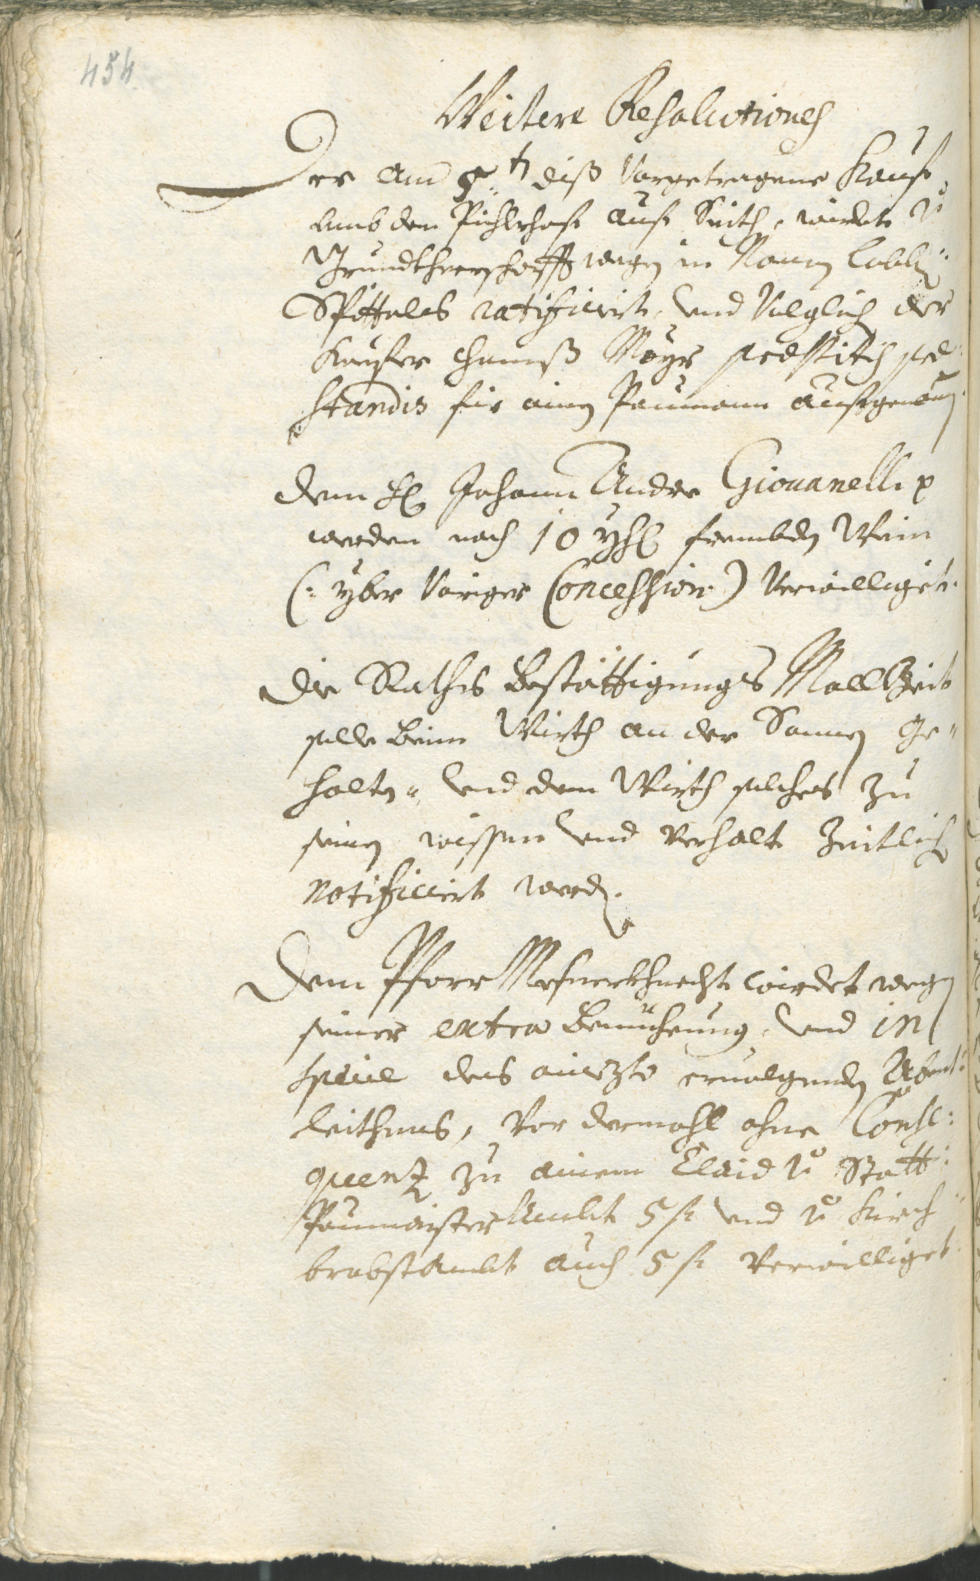 454
Weitere Resolutiones
Der am 5.ten diß Vorgetragene Kauf
umb den Pichlhof auf wirdet v
Grundtherrschafft wegen in Namen Lobl:
Spittales ratificiert, und Volglich der
Kaufer Mayr
standis für ainen Paumann aufgenomen
Dem H: Johann Andre Giovanelli p
werden noch 10 yhr frembden Wein
(: yber Voriger Concession :) Verwilliget.
Die Raths Bestättigungs Mallzeit
solle beim Wirth an der Sonnen ge-
halten, und dem Wirth solches zu
seinen wissen und Verhalt Zeitlich
notificiert werden.
Dem Pfarr Mesnerkhnecht wirdet wegen
seiner extra Bemüehung, und in
specie des aniezto ervolgenden Abent-
leithens, Vor dermahl ohne Conse:
quenz zu ainem Claid v Statt:
Paumaister Ambt 5 f und v Kirch
brobst Ambt auch 5 f Verwilliget